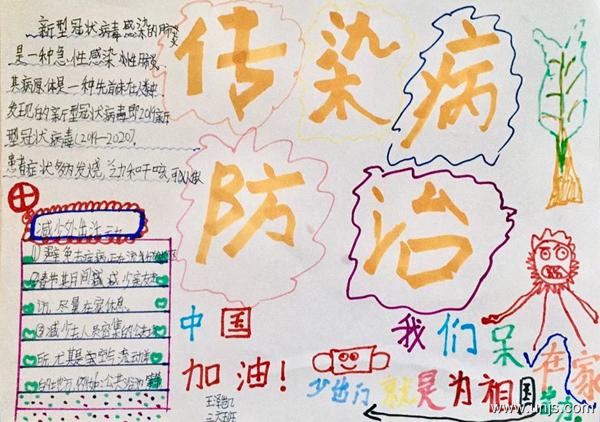 传染病
防治
新型冠状病毒感染的肺炎
是一种急性感染性肺炎
其病原体是一种先前未在人类中
发现的新型冠状病毒即2019新
型冠状病毒(2019-2020),
患者症状多为发烧,乏力和干咳
减少外出活动
①避免去疾病正在流行的地区
②春节期间减少走亲
访,尽量在家休息。
③减少去人员密集的公共场
所尤其是空气流动
的地方,例如:公共浴池
中国
加油!
王泽
我们呆在家
少出门就是为祖国
www.unjs.com